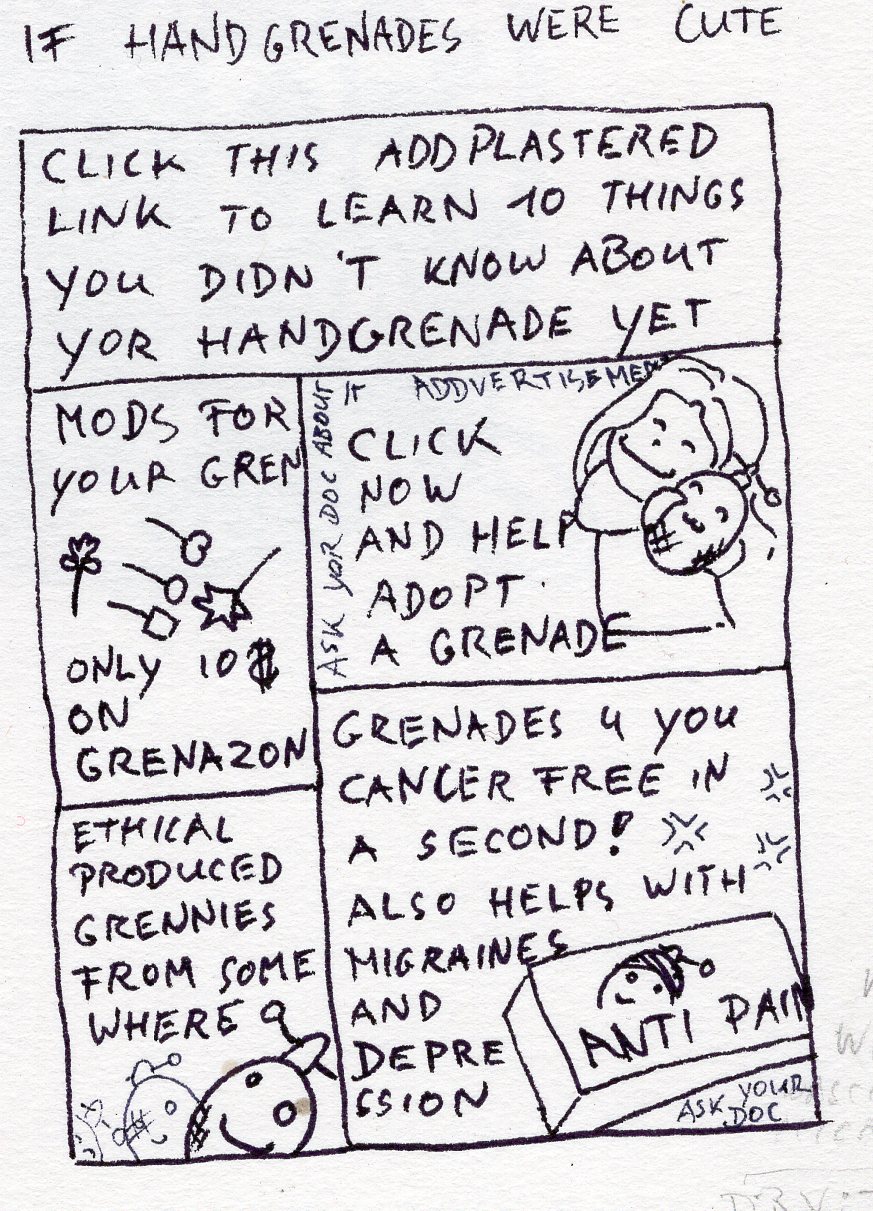 IF HANDGRENADES WERE CUTE
CLICK THIS ADDPLASTERED
LINK TO LEARN 10 THINGS
YOU DIDN'T KNOW ABOUT
YOR HANDGRENADE YET
MODS FOR
YOUR GREN
ONLY 10 $
ON
GRENAZON
ASK YOR DOC ABOUT IT
ADDVERTISEMENT
CLICK
NOW
AND HELP
ADOPT
A GRENADE
ETHICAL
PRODUCED
GRENNIES
FROM SOME
WHERE
GRENADES 4 YOU
CANCER FREE IN
A SECOND!
ALSO HELPS WITH
MIGRAINES
AND
DEPRE
SSION
ANTI PAIN
ASK YOUR
DOC